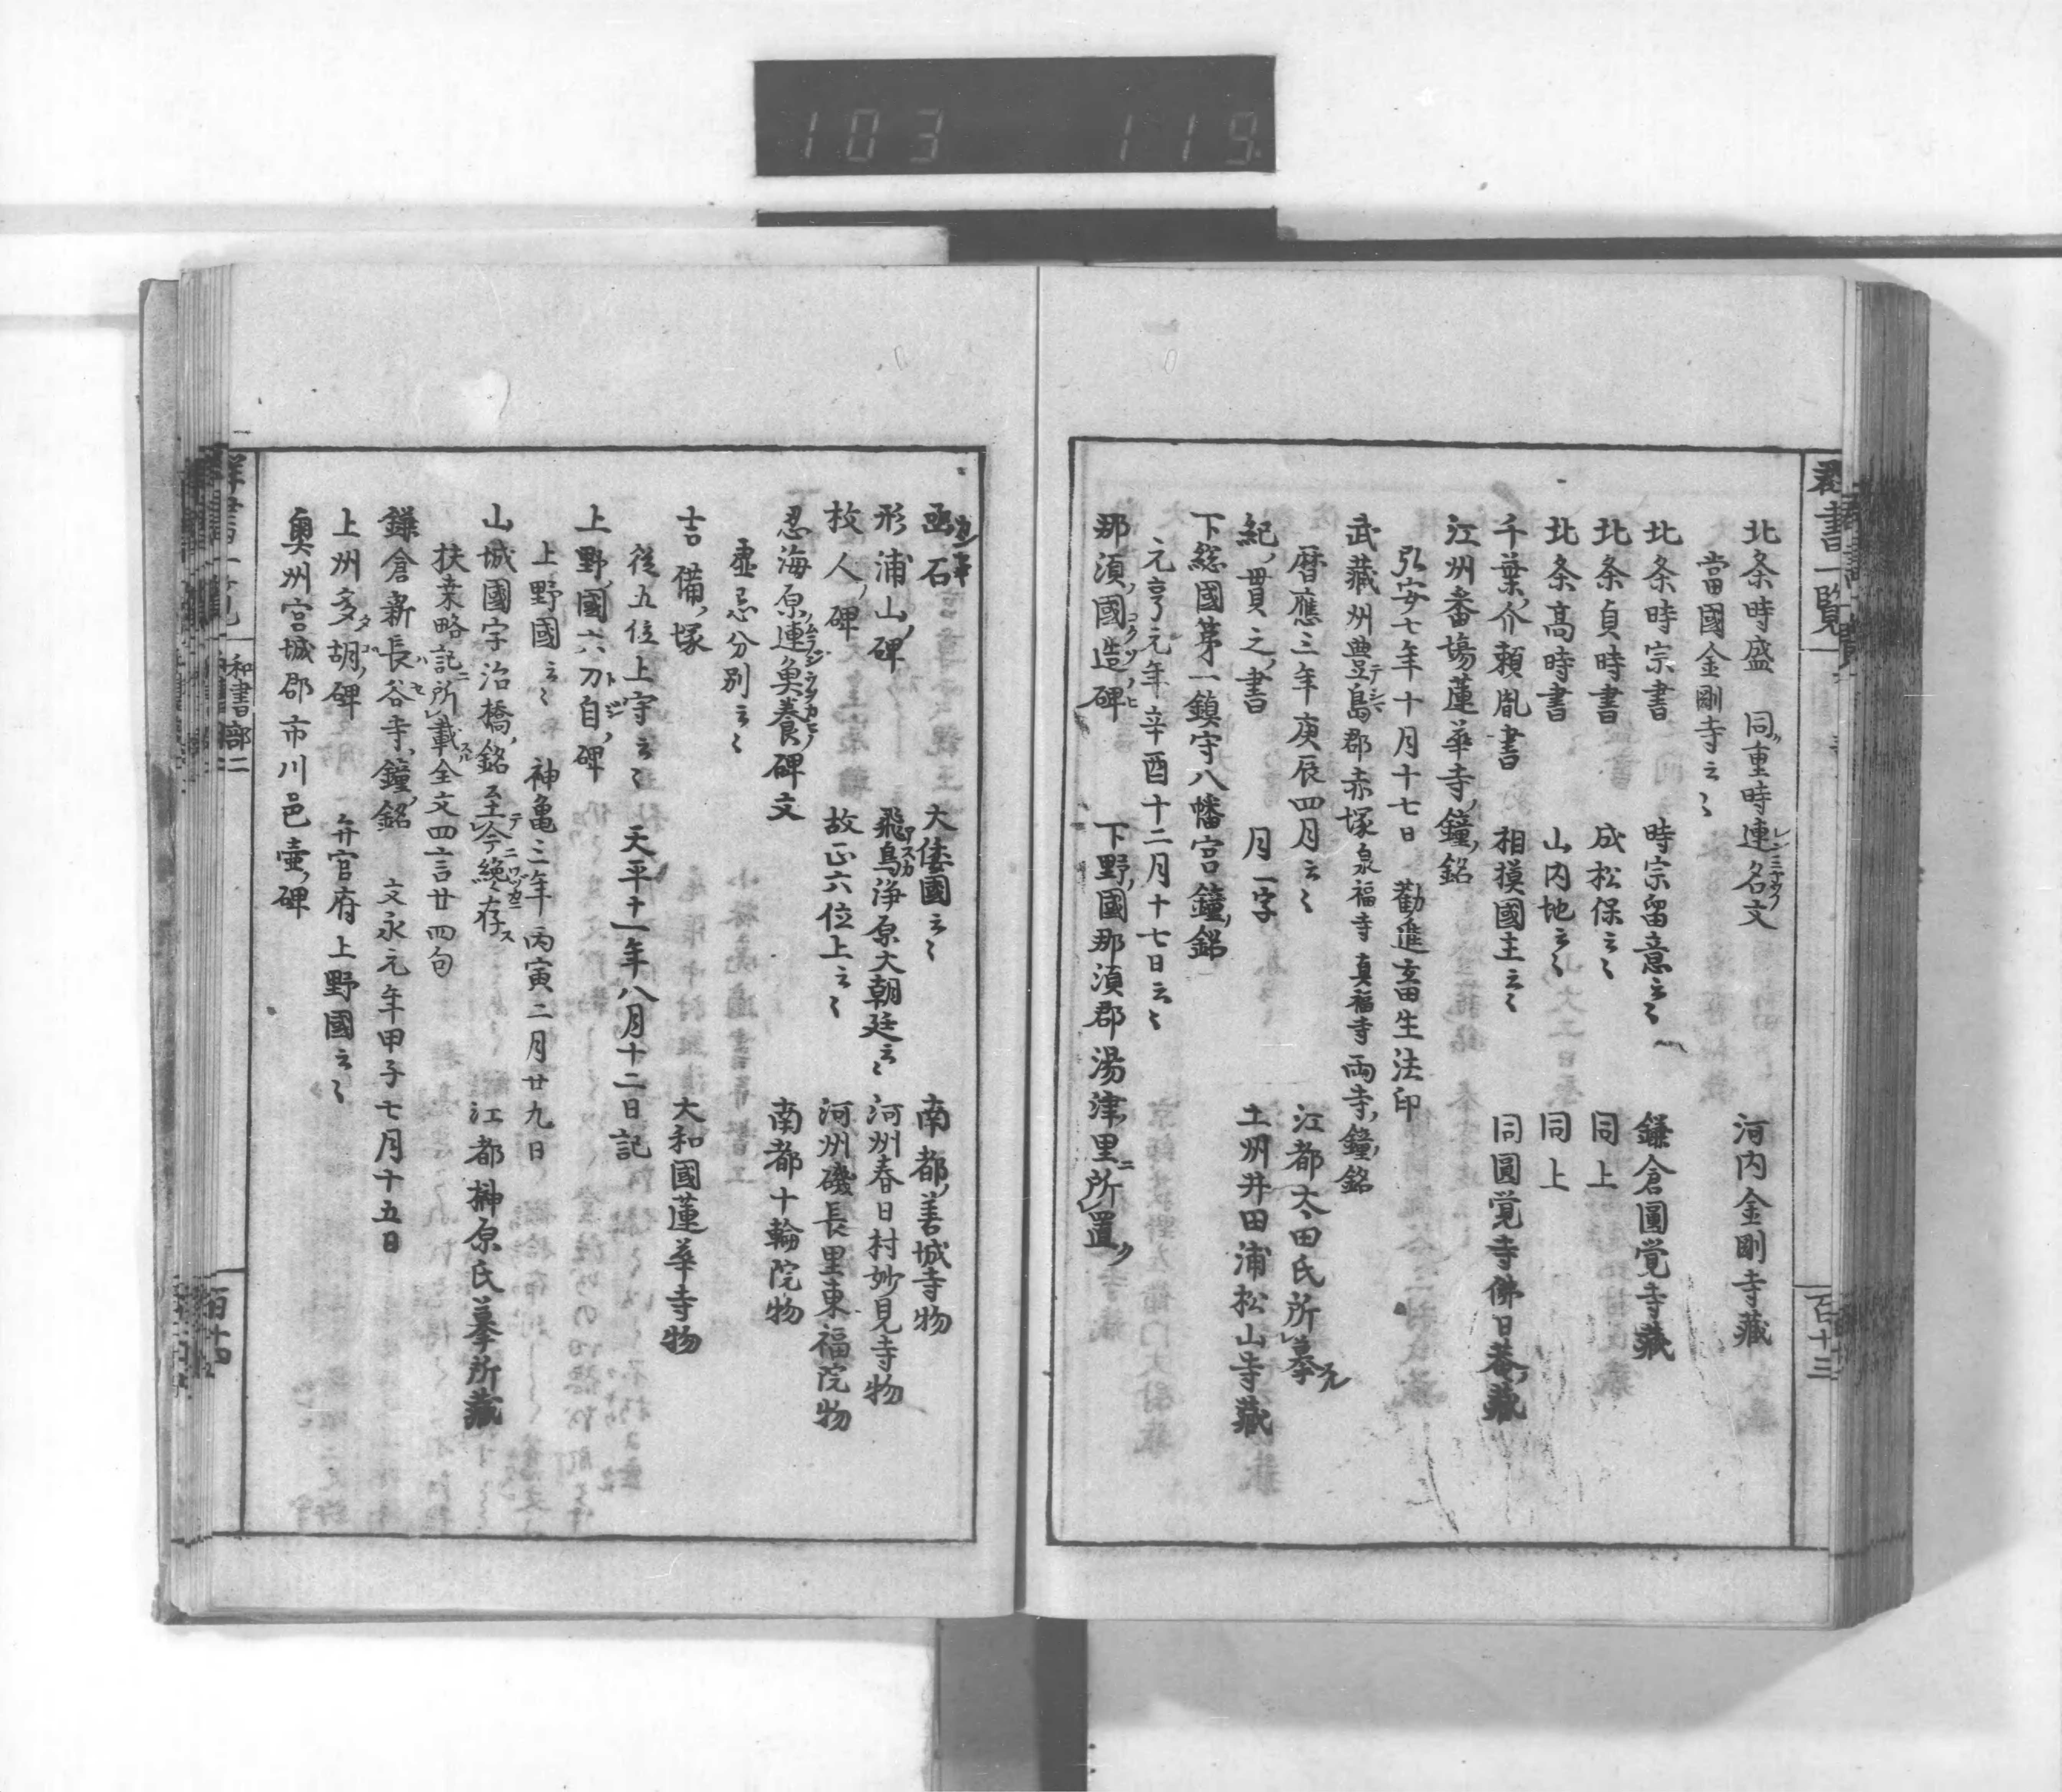 103 119
群書一覧
百十三
北条時盛 同重時連名文 河内金剛寺藏
當國金剛寺云〻
北条時宗書 時宗留意云〻 鎌倉圓覚寺藏
北条貞時書 成松保云〻 同上
北条髙時書 山内地云〻 同上
千葉介頼胤書 相摸國主云〻 同圓覚寺佛日菴藏
江州番場蓮華寺鐘銘
弘安七年十月十七日 勸進畜生法印
武藏州豊島郡赤塚泉福寺真福寺両寺鐘銘
暦應三年庚辰四月云〻 江都太田氏所摹
紀貫之書 月一字 土州井田浦松山寺藏
下総國第一鎮守八幡宮鐘銘
元亨元年辛酉十二月十七日云〻
那須國造碑 下野國那須郡湯津里ニ所置
凾石 大倭國云〻 南都善城寺物
形浦山碑 飛鳥浄原大朝廷云〻 河州春日村妙見寺物
故人碑 故正六位上云〻 河州磯長里東福院物
忍海原連魚養碑文 南都十輪院物
虚忘分別云〻
吉備塚 大和國蓮華寺物
後五位上守云〻 天平十一年八月十二日記
上野國六刀自碑
上野國云〻 神亀三年丙寅二月廿九日
山城國宇治橋銘至今纔存 江都榊原氏摹所藏
扶桒略記ニ所載全文四言廿四句
鎌倉新長谷寺鐘銘 文永元年甲子七月十五日
上州多胡碑 弁官府上野國云〻
奥州宮城郡市川邑壷碑
和書部二
百十四